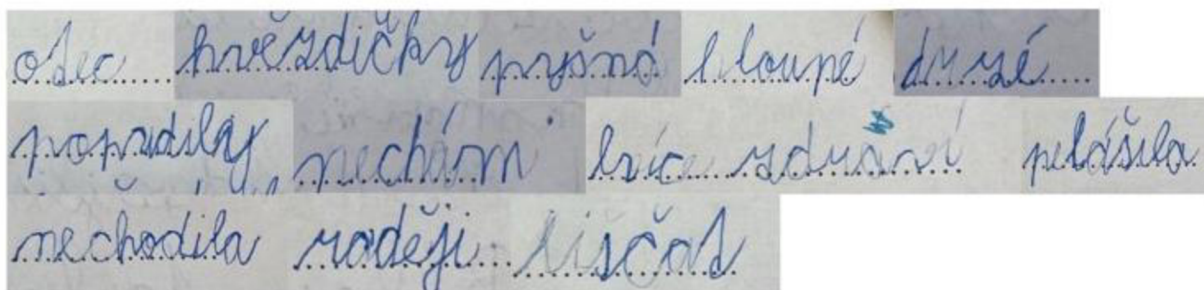 otec hvězdičky pyšná hloupé drzé
popudily nechám kvíce zdraví pelášila
nechodila raději lišćat